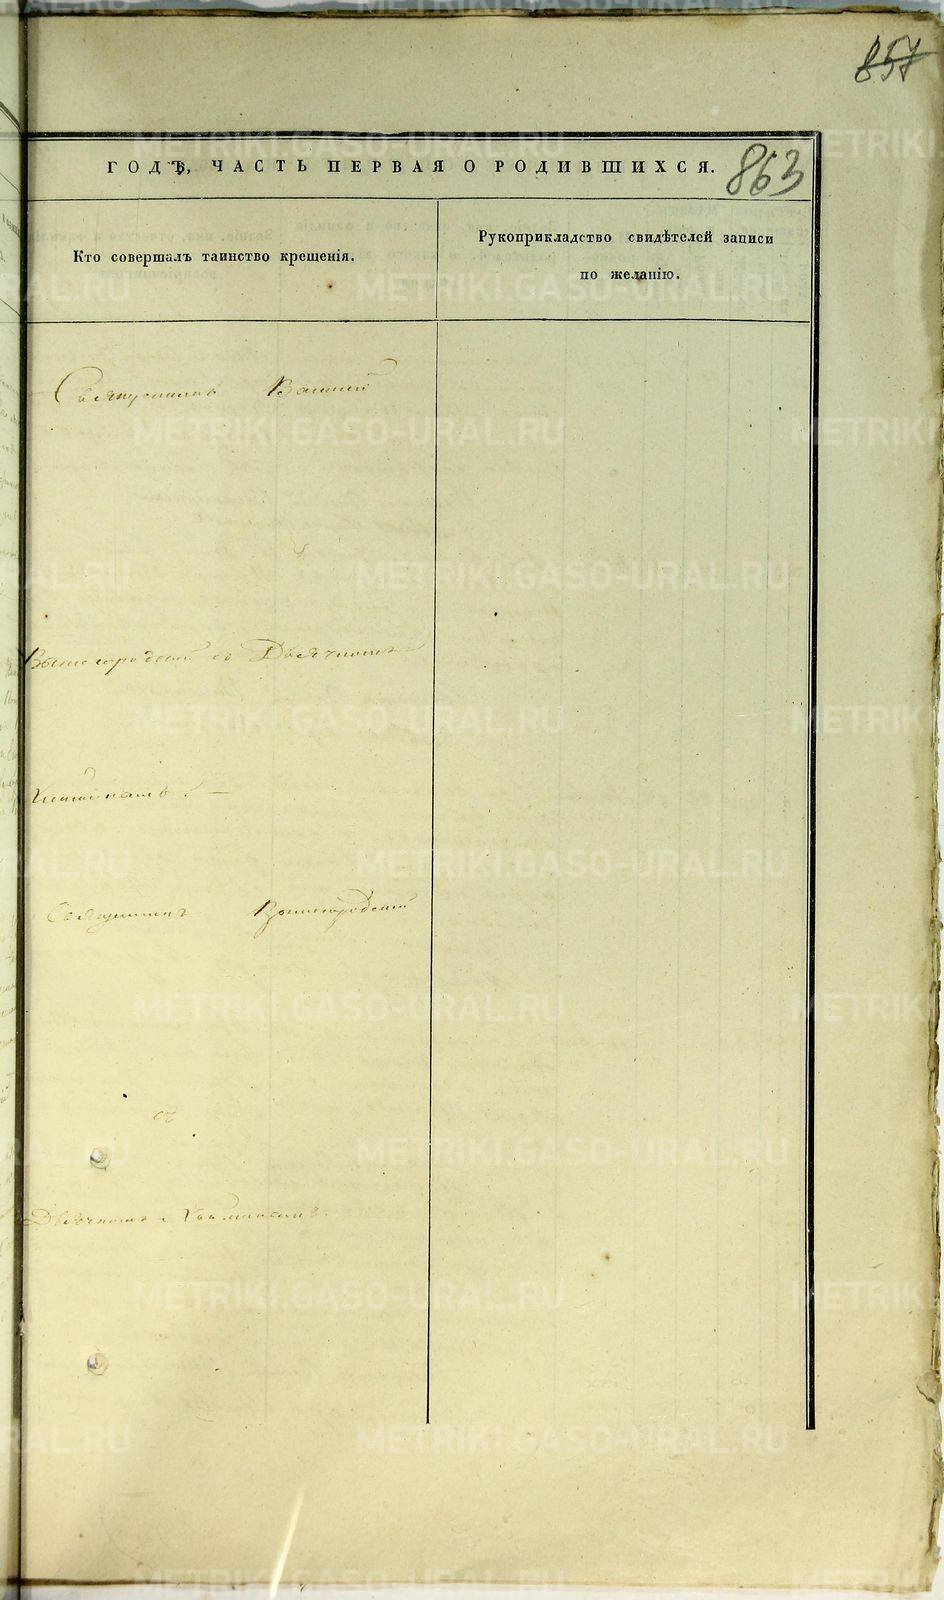 857
ГОДЪ, ЧАСТЬ ПЕРВАЯ О РОДИВШИХСЯ.
863
Кто совершалъ таинство крещенія.
Рукоприкладство свидѣтелей записи
по желанію.
Священникъ
Вышегородскій съ Дьячкомъ
Священникъ Вышегородскій
съ
Дьячкомъ
METRIKI.GASO-URAL.RU